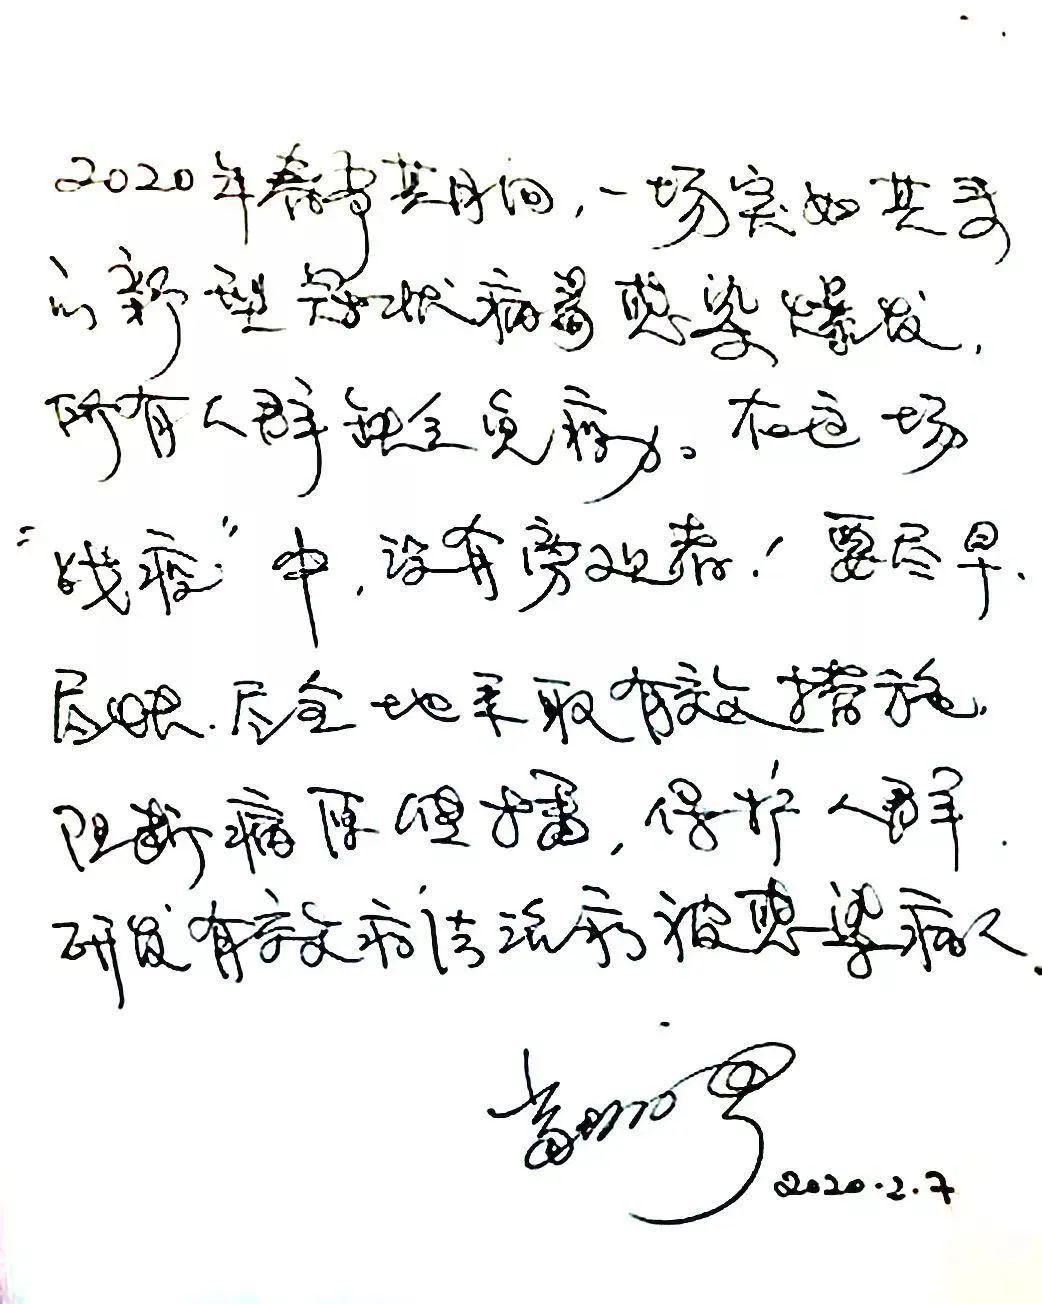 2020年春节期间，一场突如其来
的新型冠状病毒感染爆发，
所有人群缺乏免疫力。在这场
“战疫”中，没有旁观者！要尽早、
尽快、尽全地采取有效措施，
阻断病原体传播，保护人群，
研发有效药法治疗被感染病人。
2020.2.7